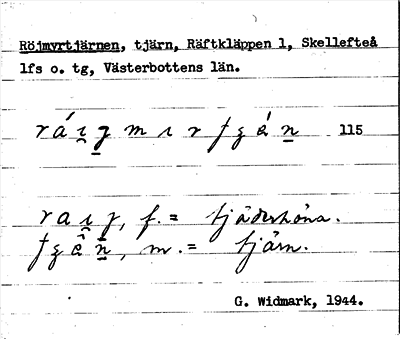 Röjmyrtjärnen, tjärn, Räftkläppen 1, Skellefteå
lfs o. tg, Västerbottens län.
115
f. = tjäderhöna.
m. = tjärn.
G. Widmark, 1944.